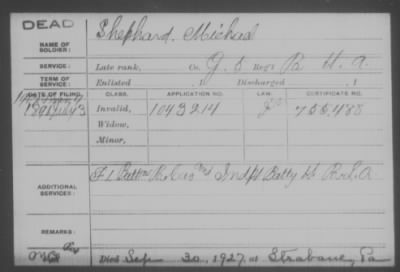 DEAD
NAME OF SOLDIER:
Shephard. Michael
SERVICE:
Late rank, Co. G. 5 Reg't R. H. A.
TERM OF SERVICE:
Enlisted , 1 Discharged , 1
DATE OF FILING. CLASS. APPLICATION NO. LAW. CERTIFICATE NO.
1891 July 3 Invalid, 1043214 755,488
Widow,
Minor,
ADDITIONAL SERVICES:
F L Batty H
REMARKS:
Died Sep 30, 1927, at Strabane, Pa